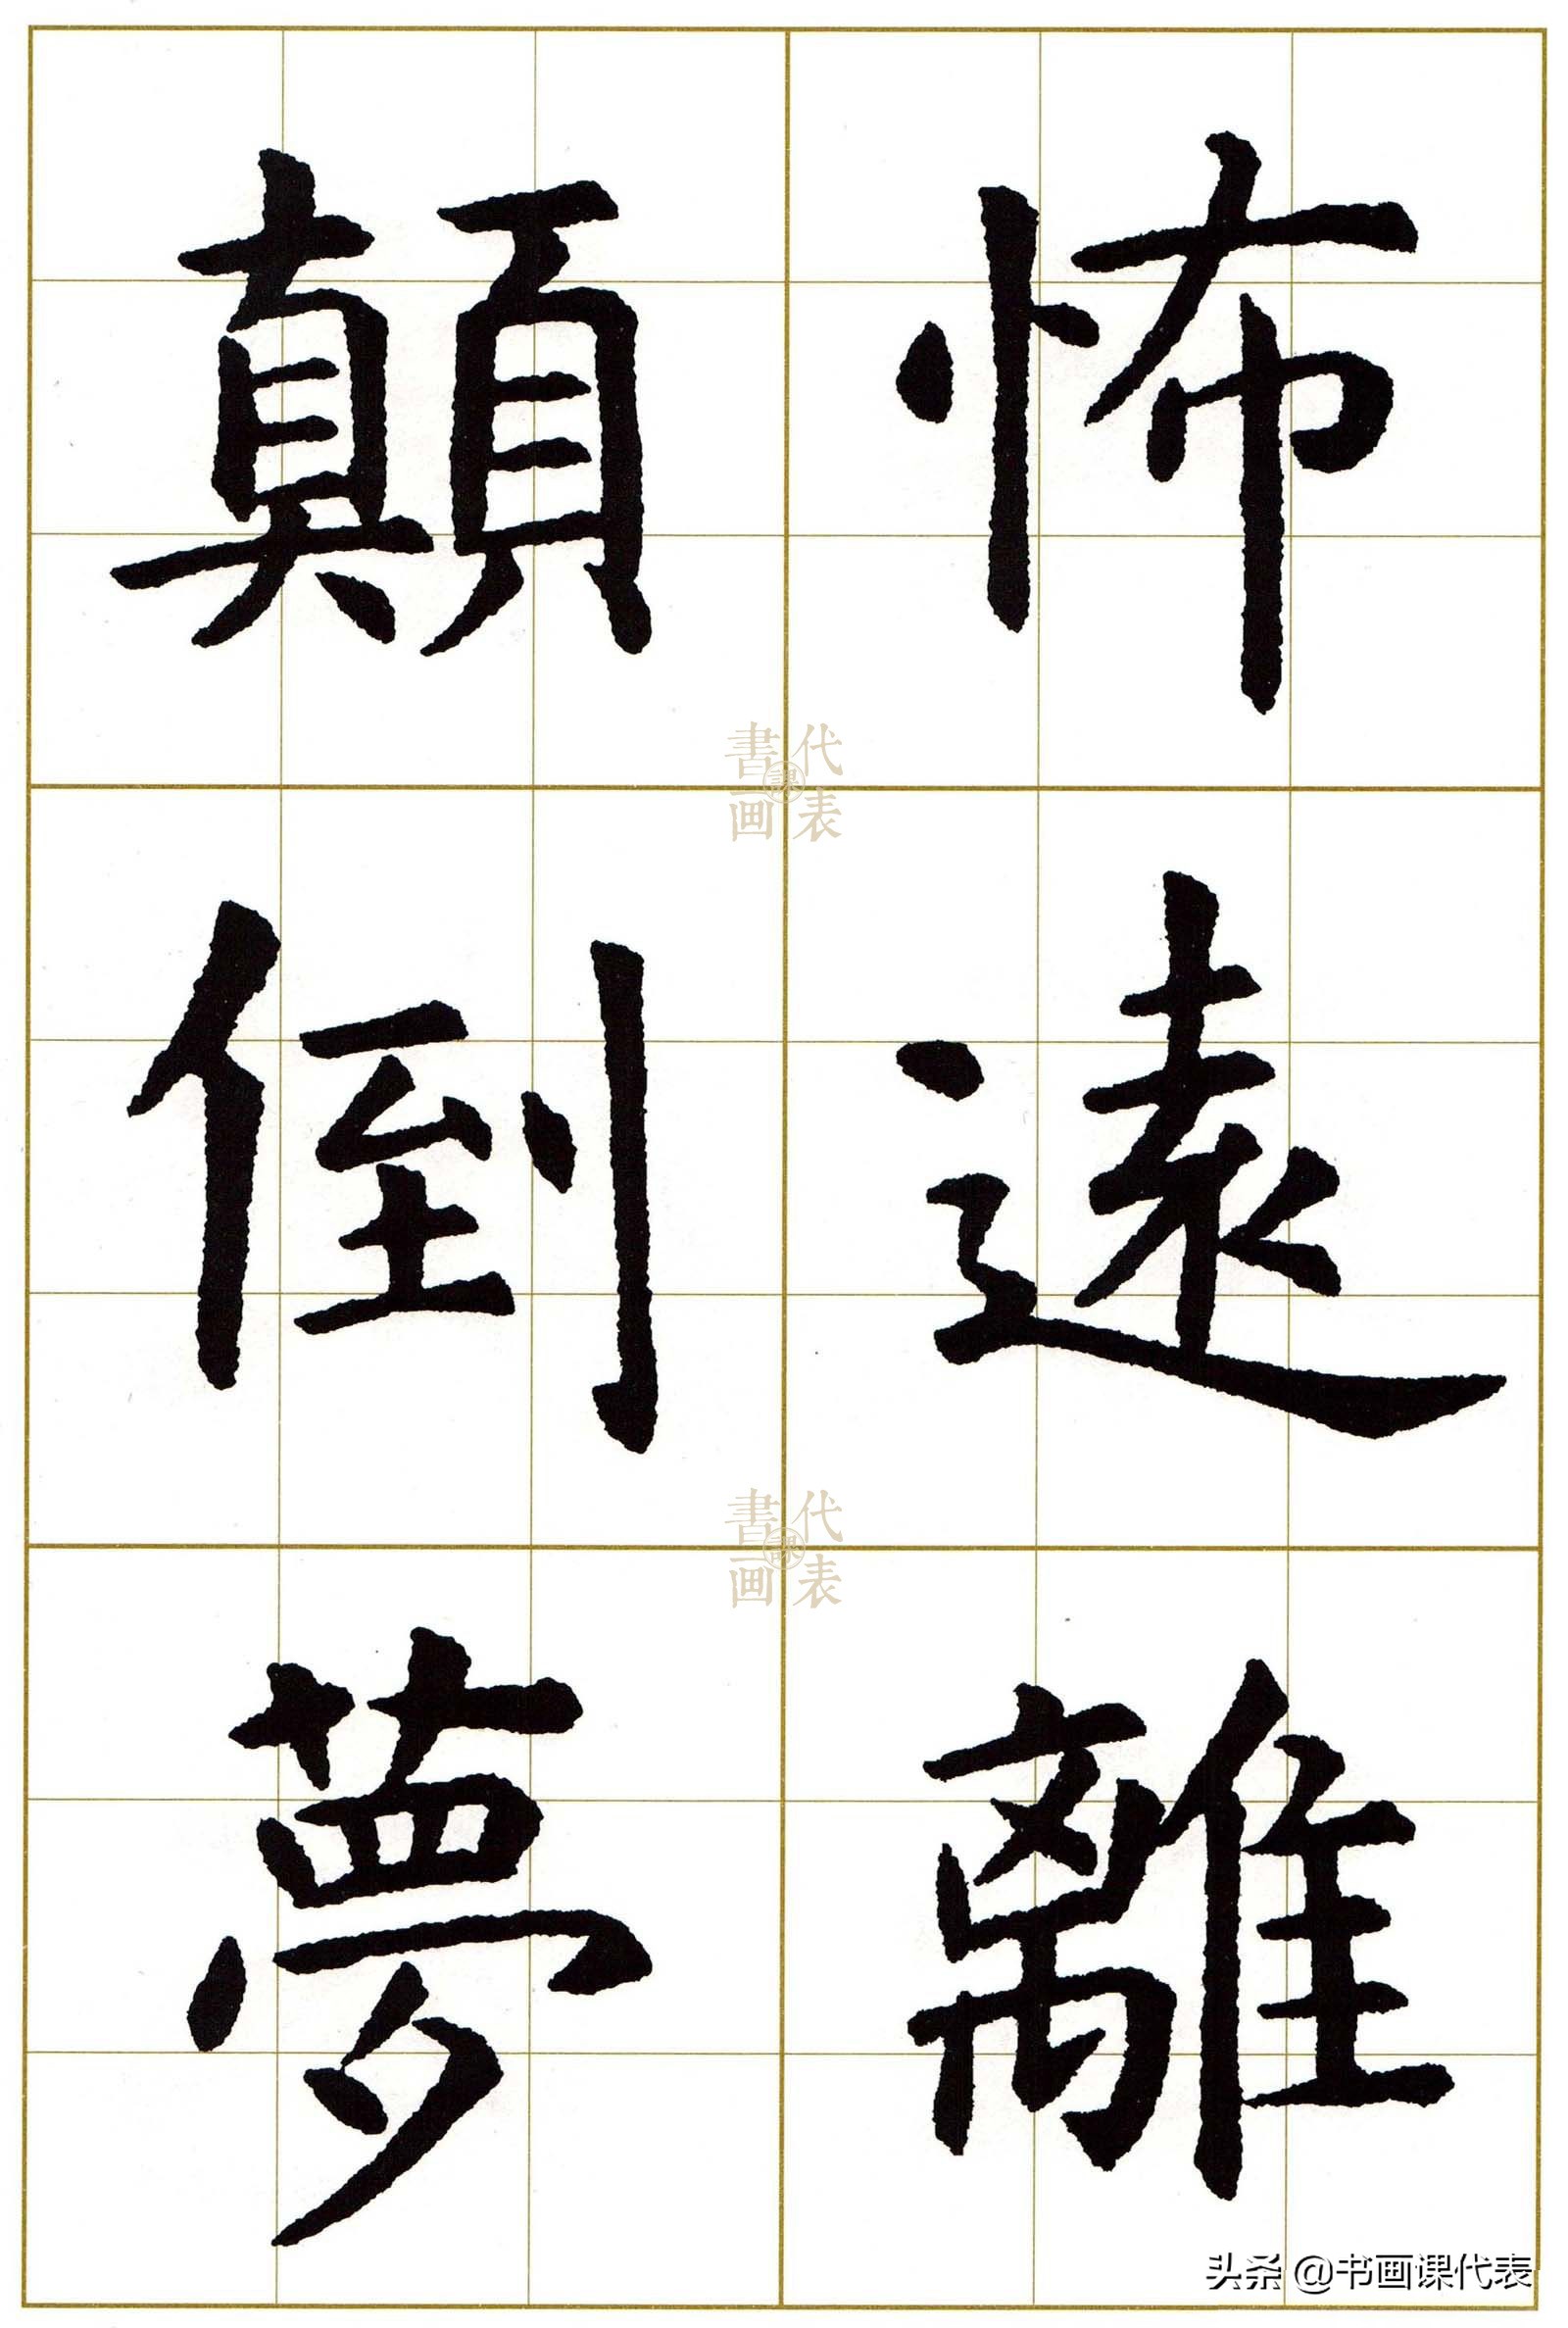 怖遠離
顛倒夢
書画課代表
書画課代表
头条 @书画课代表